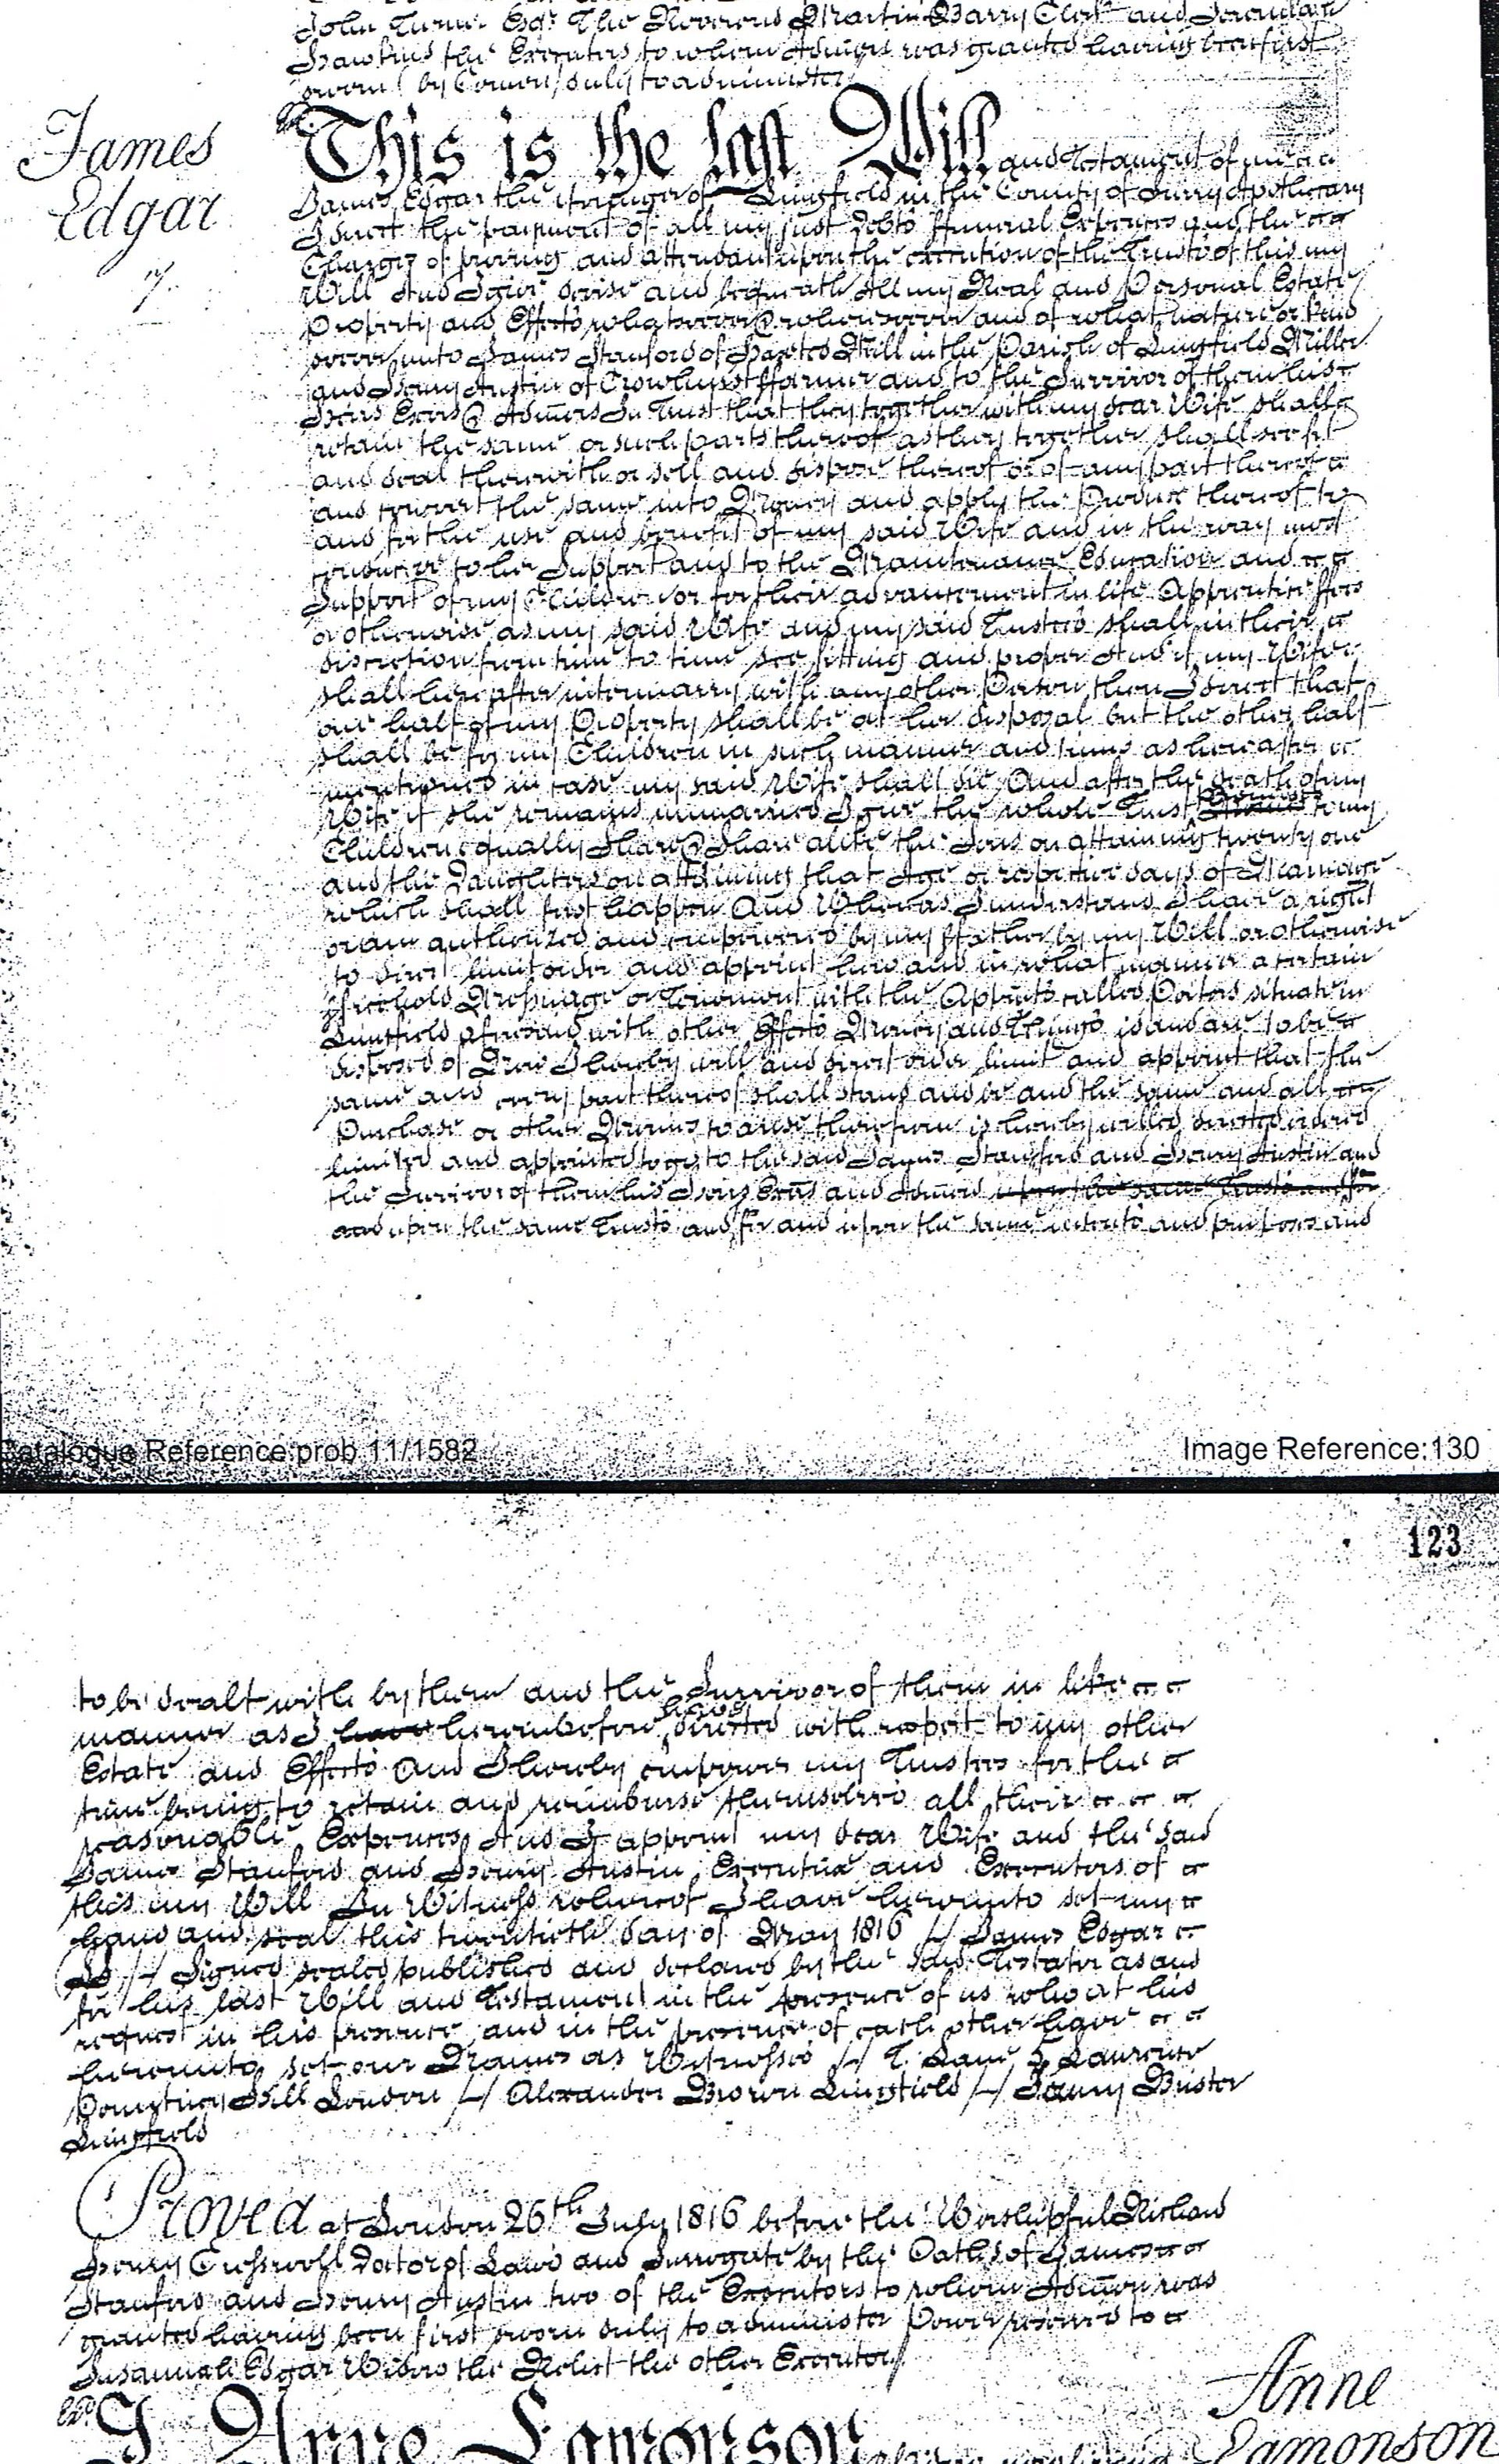 John Turner Esqr. The Reverend Martin Barry Clerk and Jeremiah
Hawkins the Executors to whom Admon was granted having been first
sworn (by Comon) duly to administer
James
Edgar
7.
This is the last Will and Testament of me
James Edgar the Younger of Lingfield in the County of Surry Apothecary
I direct the payment of all my just Debts ffuneral Expences and the
Charges of proving and attendant upon the execution of the Trusts of this my
Will And I give devise and bequeath All my Real and Personal Estate
Property and Effects whatsoever & wheresoever and of what nature or kind
soever unto James Stanford of Haxted Mill in the Parish of Lingfield Miller
and Henry Austin of Crowhurst ffarmer and to the Survivor of them his
Heirs Exors & Admors In Trust that they together with my dear Wife shall
retain the same or such parts thereof as they together shall see fit
and deal therewith or sell and dispose thereof or of any part thereof
and convert the same into Money and apply the Produce thereof to
and for the use and benefit of my said Wife and in the way most
conducive to her Support and to the Maintenance Education and
Support of my Children or for their advancement in life Apprentice ffees
or otherwise as my said Wife and my said Trustees shall in their
discretion from time to time see fitting and proper And if my Wife
shall hereafter intermarry with any other Person then I direct that
one half of my Property shall be at her disposal but the other half
shall be for my Children in such manner and times as hereafter
mentioned in case my said Wife shall die And after the death of my
Wife if she remains unmarried I give the whole Trust to my
Children equally Share & Share alike the Sons on attaining twenty one
and the Daughters on attaining that Age or respective days of Marriage
which shall first happen And Whereas I understand I have a right
or am authorized and empowered by my ffather by my Will or otherwise
to direct limit order and appoint how and in what manner a certain
ffreehold Messuage or Tenement with the Appurts called Porters situate in
Lingfield aforesaid with other Effects Money and Things is and are to be
disposed of Now I hereby will and direct order limit and appoint that the
same and every part thereof shall stand and be and the same and all
Purchase or other Monies to arise therefrom is hereby willed directed ordered
limited and appointed to go to the said James Stanford and Henry Austin and
the Survivor of them his Heirs Exors and Admors upon the same Trusts and for
and upon the same Trusts and for and upon the same intents and purposes and
Catalogue Reference:prob 11/1582
Image Reference:130
123
to be dealt with by them and the Survivor of them in like
manner as I have hereinbefore have directed with respect to my other
Estate and Effects And I hereby empower my Trustees for the
time being to retain and reimburse themselves all their
reasonable Expences And I appoint my dear Wife and the said
James Stanford and Henry Austin Executrix and Executors of
this my Will In Witness whereof I have hereunto set my
hand and seal this twentieth day of May 1816 // James Edgar
LS // Signed sealed published and declared by the said Testator as and
for his last Will and Testament in the presence of us who at his
request in his presence and in the presence of each other have
hereunto set our Names as Witnesses // T. Lane 3 Laurence
Pountney Hill London // Alexander Brown Lingfield // Fanny Buster
Lingfield
Proved at London 26th July 1816 before the Worshipful Richard
Henry Cresswell Doctor of Laws and Surrogate by the Oaths of James
Stanford and Henry Austin two of the Executors to whom Admon was
granted having been first sworn duly to administer Power reserved to
Susannah Edgar Widow the Relict the other Executor
Anne
Eamonson
I Anne Eamonson